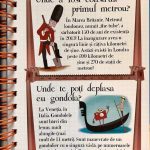 Unde a fost construit
primul metrou?
În Marea Britanie. Metroul
londonez, numit „the tube” a
sărbătorit 150 de ani de existență
în 2013! La inaugurare avea o
singură linie și câțiva kilometri
de șine. Astăzi există în Londra
peste 400 kilometri de
șine și 270 de stații de
metrou!
Unde te poți deplasa
cu gondola?
La Veneția, în
Italia. Gondolele
sunt bărci din
lemn, mult
alungite (mai
mult de 11 metri). Sunt manevrate de un
gondolier cu o singură vâslă, pe numeroasele